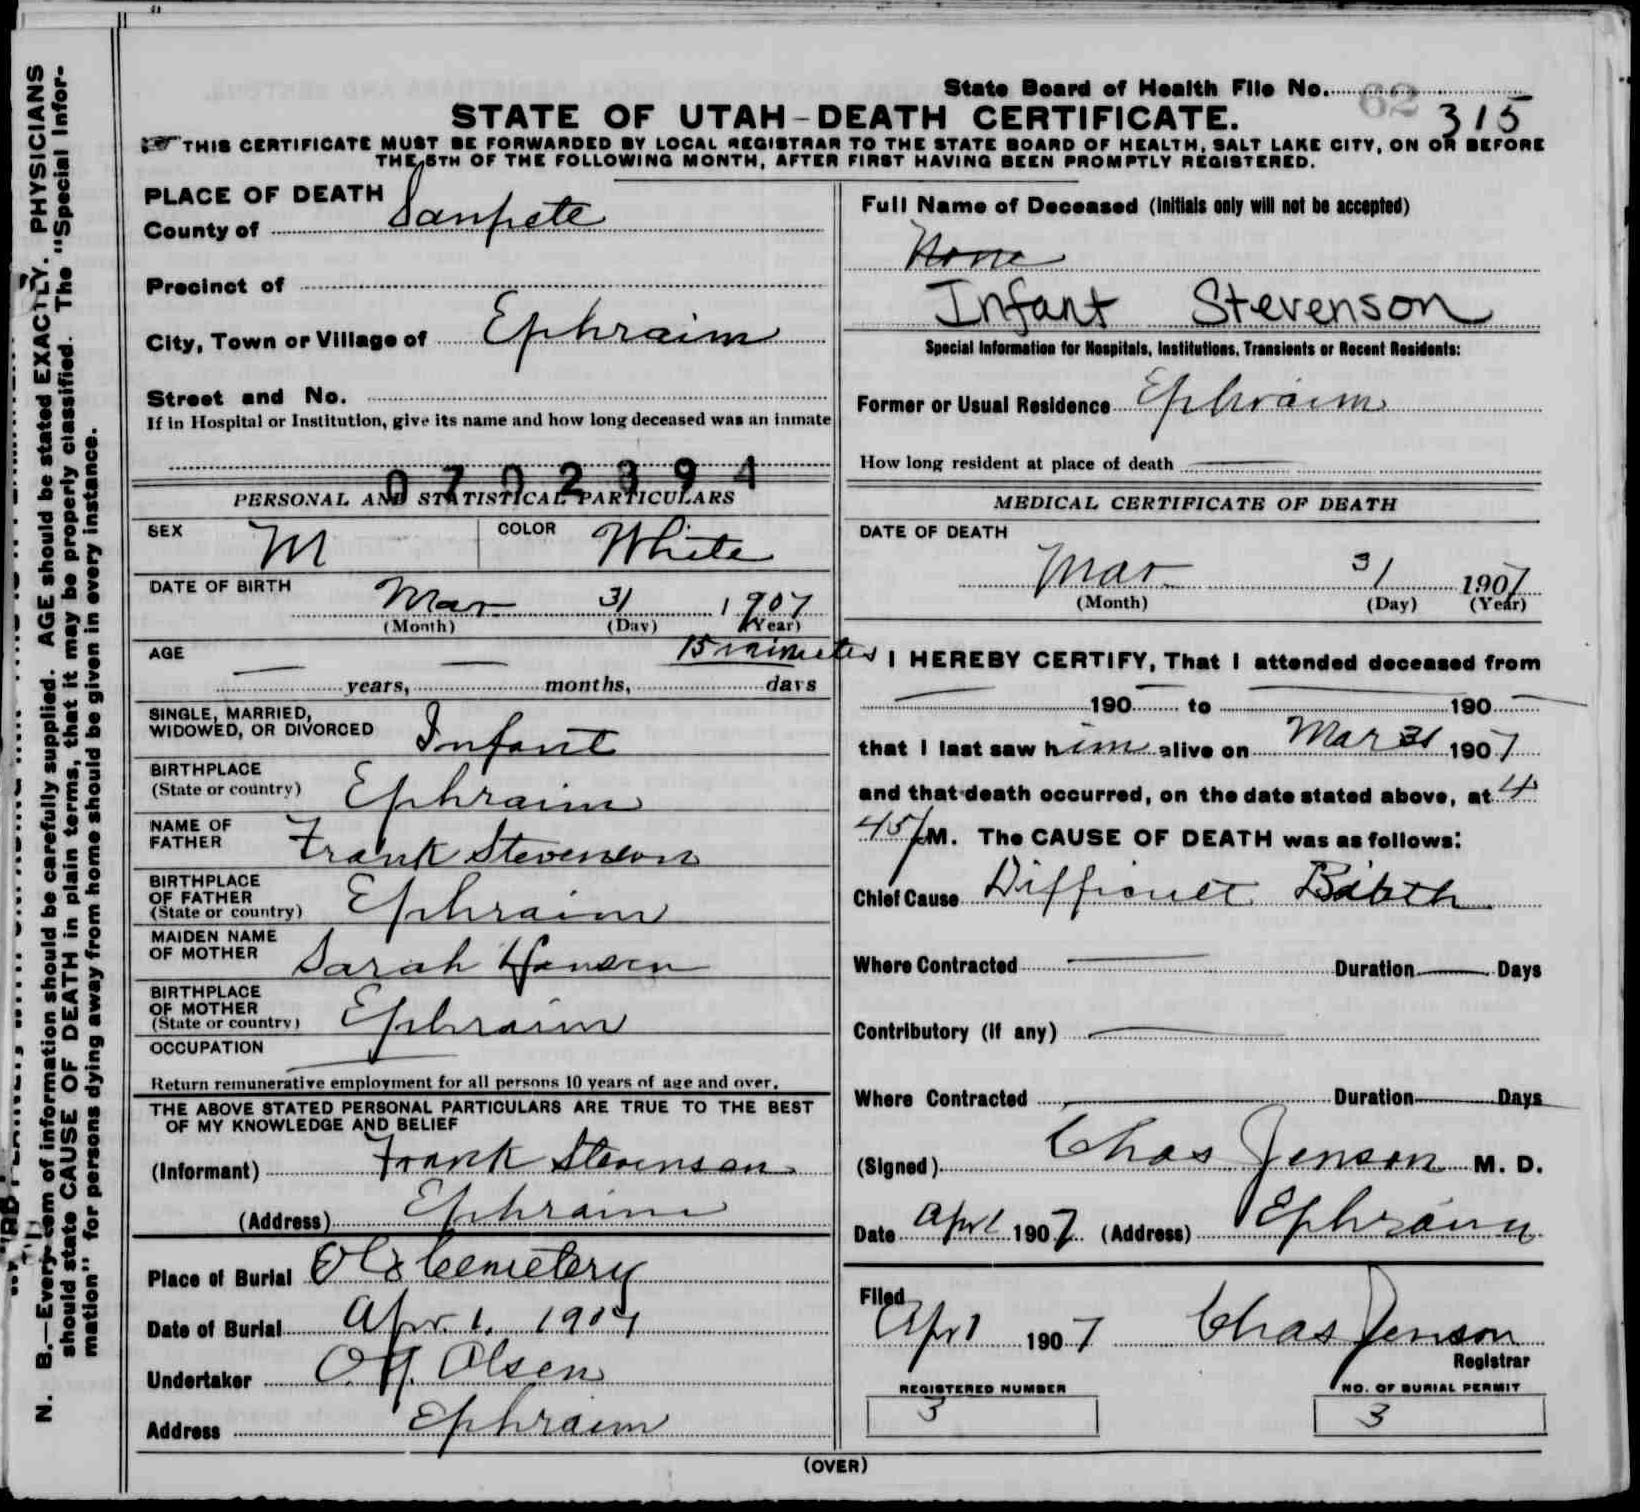 State Board of Health File No. 62 315
STATE OF UTAH–DEATH CERTIFICATE.
THIS CERTIFICATE MUST BE FORWARDED BY LOCAL REGISTRAR TO THE STATE BOARD OF HEALTH, SALT LAKE CITY, ON OR BEFORE
THE 5TH OF THE FOLLOWING MONTH, AFTER FIRST HAVING BEEN PROMPTLY REGISTERED.
PLACE OF DEATH
County of Sanpete
Precinct of
City, Town or Village of Ephraim
Street and No.
If in Hospital or Institution, give its name and how long deceased was an inmate
0702394
PERSONAL AND STATISTICAL PARTICULARS
SEX M COLOR White
DATE OF BIRTH Mar 31 1907
(Month) (Day) (Year)
AGE 15 minutes
years, months, days
SINGLE, MARRIED,
WIDOWED, OR DIVORCED Infant
BIRTHPLACE
(State or country) Ephraim
NAME OF
FATHER Frank Stevenson
BIRTHPLACE
OF FATHER
(State or country) Ephraim
MAIDEN NAME
OF MOTHER Sarah Hansen
BIRTHPLACE
OF MOTHER
(State or country) Ephraim
OCCUPATION
Return remunerative employment for all persons 10 years of age and over.
THE ABOVE STATED PERSONAL PARTICULARS ARE TRUE TO THE BEST
OF MY KNOWLEDGE AND BELIEF
(Informant) Frank Stevenson
(Address) Ephraim
Place of Burial Old Cemetery
Date of Burial Apr. 1. 1907
Undertaker Olsen
Address Ephraim
Full Name of Deceased (Initials only will not be accepted)
None
Infant Stevenson
Special Information for Hospitals, Institutions, Transients or Recent Residents:
Former or Usual Residence Ephraim
How long resident at place of death
MEDICAL CERTIFICATE OF DEATH
DATE OF DEATH
Mar 31 1907
(Month) (Day) (Year)
I HEREBY CERTIFY, That I attended deceased from
190 to 190
that I last saw him alive on Mar 31 1907
and that death occurred, on the date stated above, at 4
45 PM. The CAUSE OF DEATH was as follows:
Chief Cause Difficult Birth
Where Contracted Duration Days
Contributory (if any)
Where Contracted Duration Days
(Signed) Chas Jenson M. D.
Date Apr 1 1907 (Address) Ephraim
Filed
Apr 1 1907 Chas Jenson
Registrar
REGISTERED NUMBER NO. OF BURIAL PERMIT
3 3
(OVER)
N. B.—Every item of information should be carefully supplied. AGE should be stated EXACTLY. PHYSICIANS
should state CAUSE OF DEATH in plain terms, that it may be properly classified. The "Special Infor-
mation" for persons dying away from home should be given in every instance.